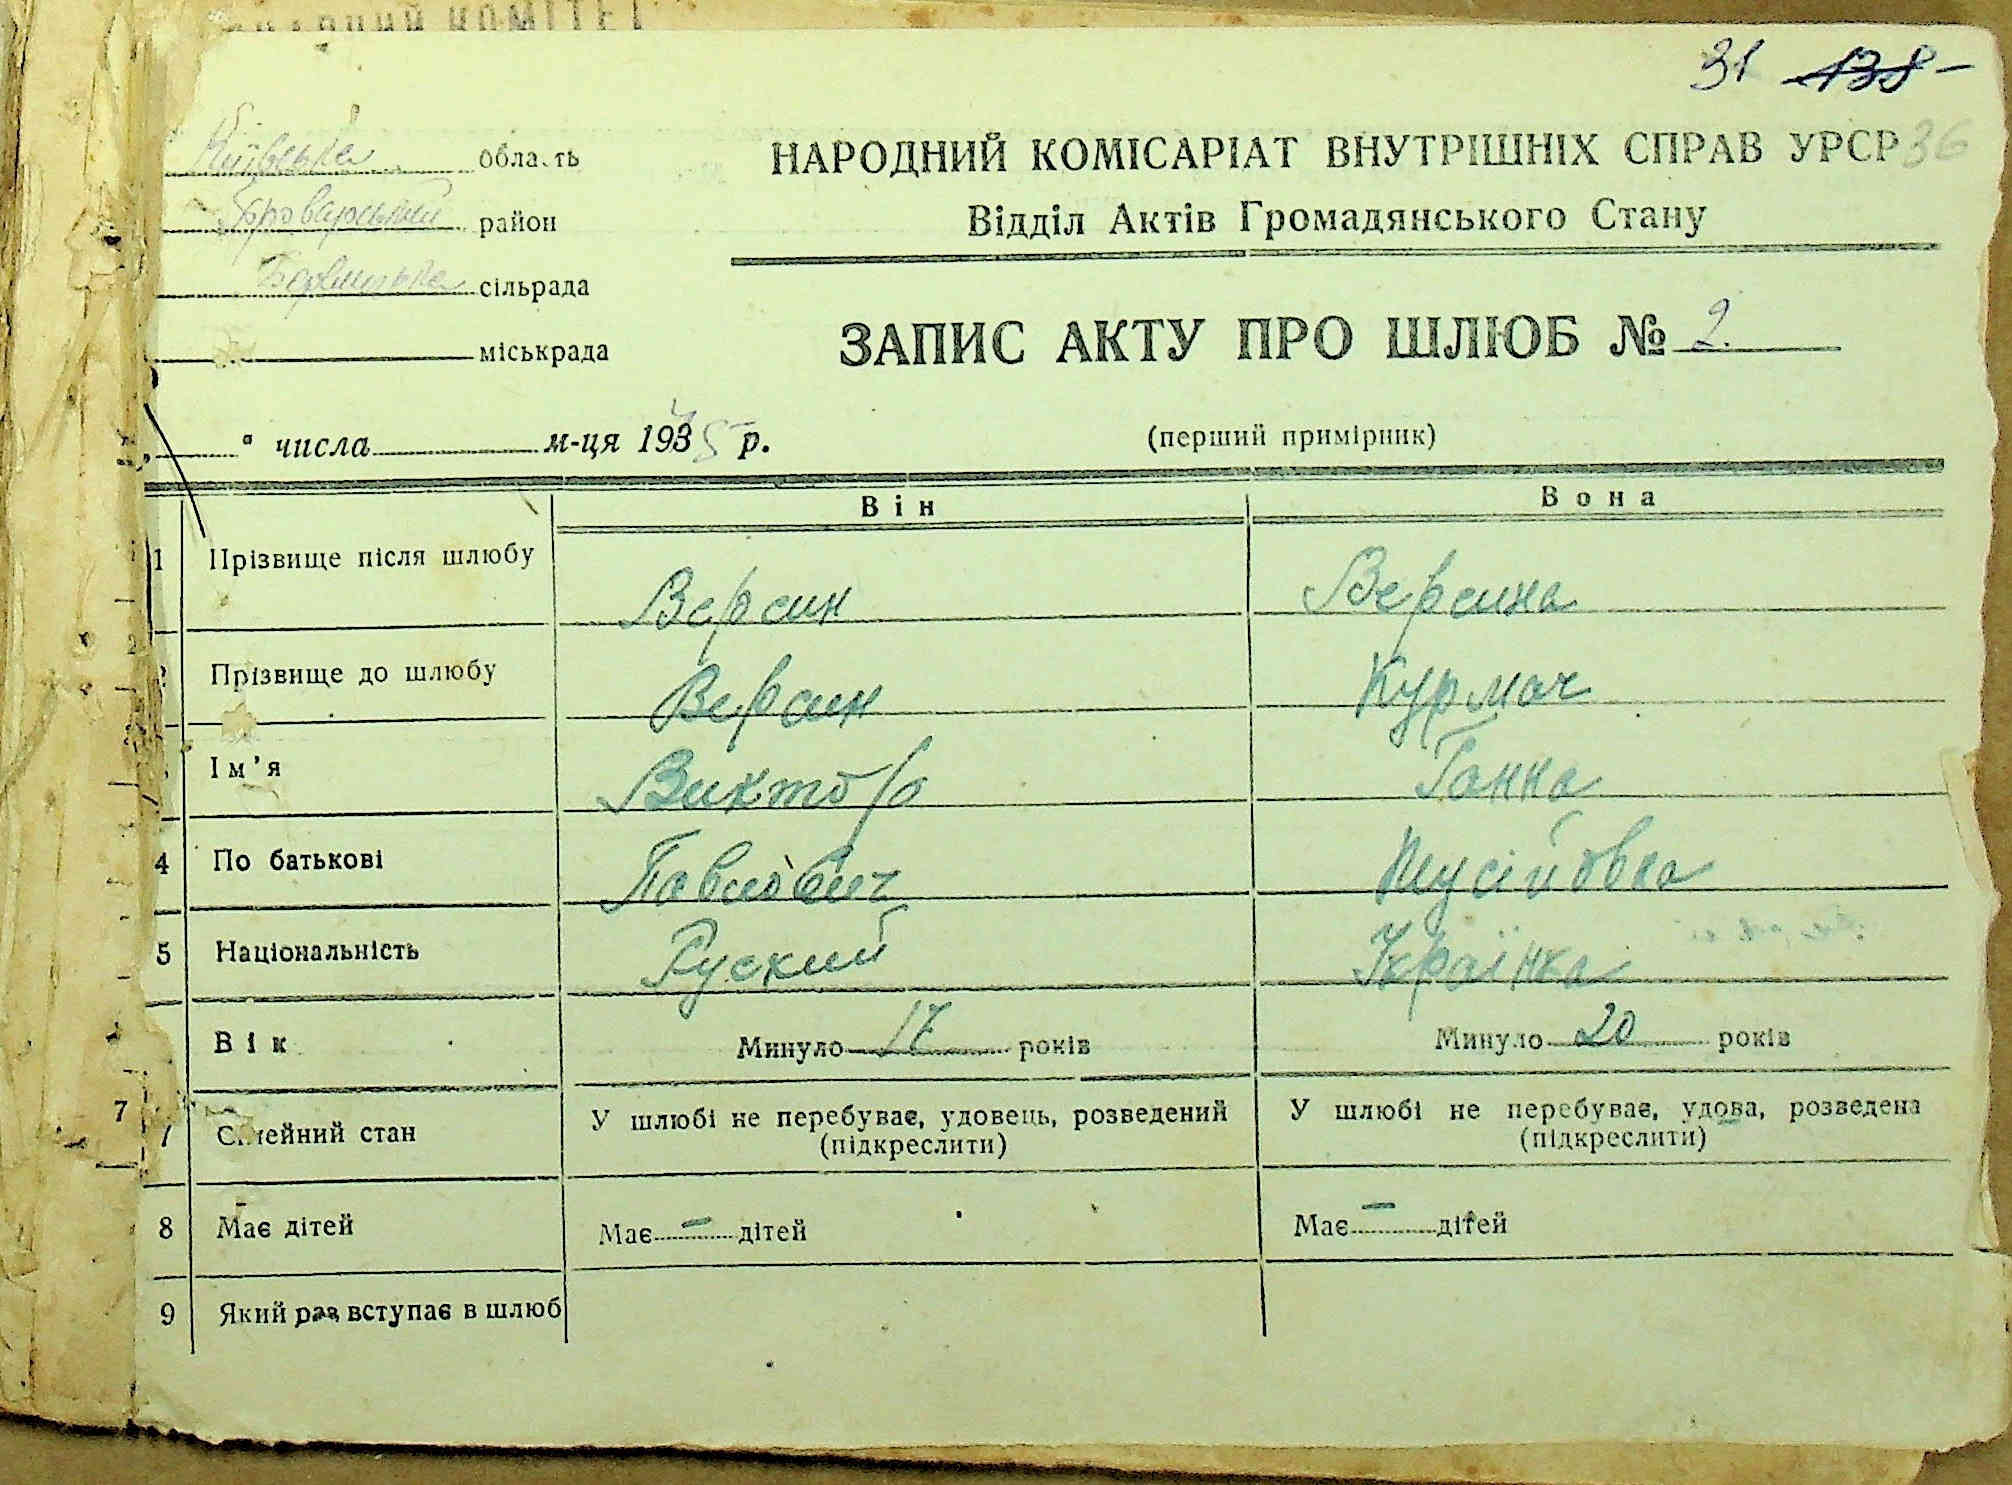 31 138
Київська область
НАРОДНИЙ КОМІСАРІАТ ВНУТРІШНІХ СПРАВ УРСР 36
Броварський район
Відділ Актів Громадянського Стану
сільрада
ЗАПИС АКТУ ПРО ШЛЮБ № 2.
міськрада
" числа м-ця 1945 р.
(перший примірник)
Він Вона
1 Прізвище після шлюбу Версин Версина
2 Прізвище до шлюбу Версин Курмач
Ім'я Виктор Ганна
4 По батькові Павлович Мусійовна
5 Національність Руский Українка
Вік Минуло 17 років Минуло 20 років
7 7 Сімейний стан У шлюбі не перебуває, удовець, розведений У шлюбі не перебуває, удова, розведена
(підкреслити) (підкреслити)
8 Має дітей Має — дітей Має — дітей
9 Який раз вступає в шлюб